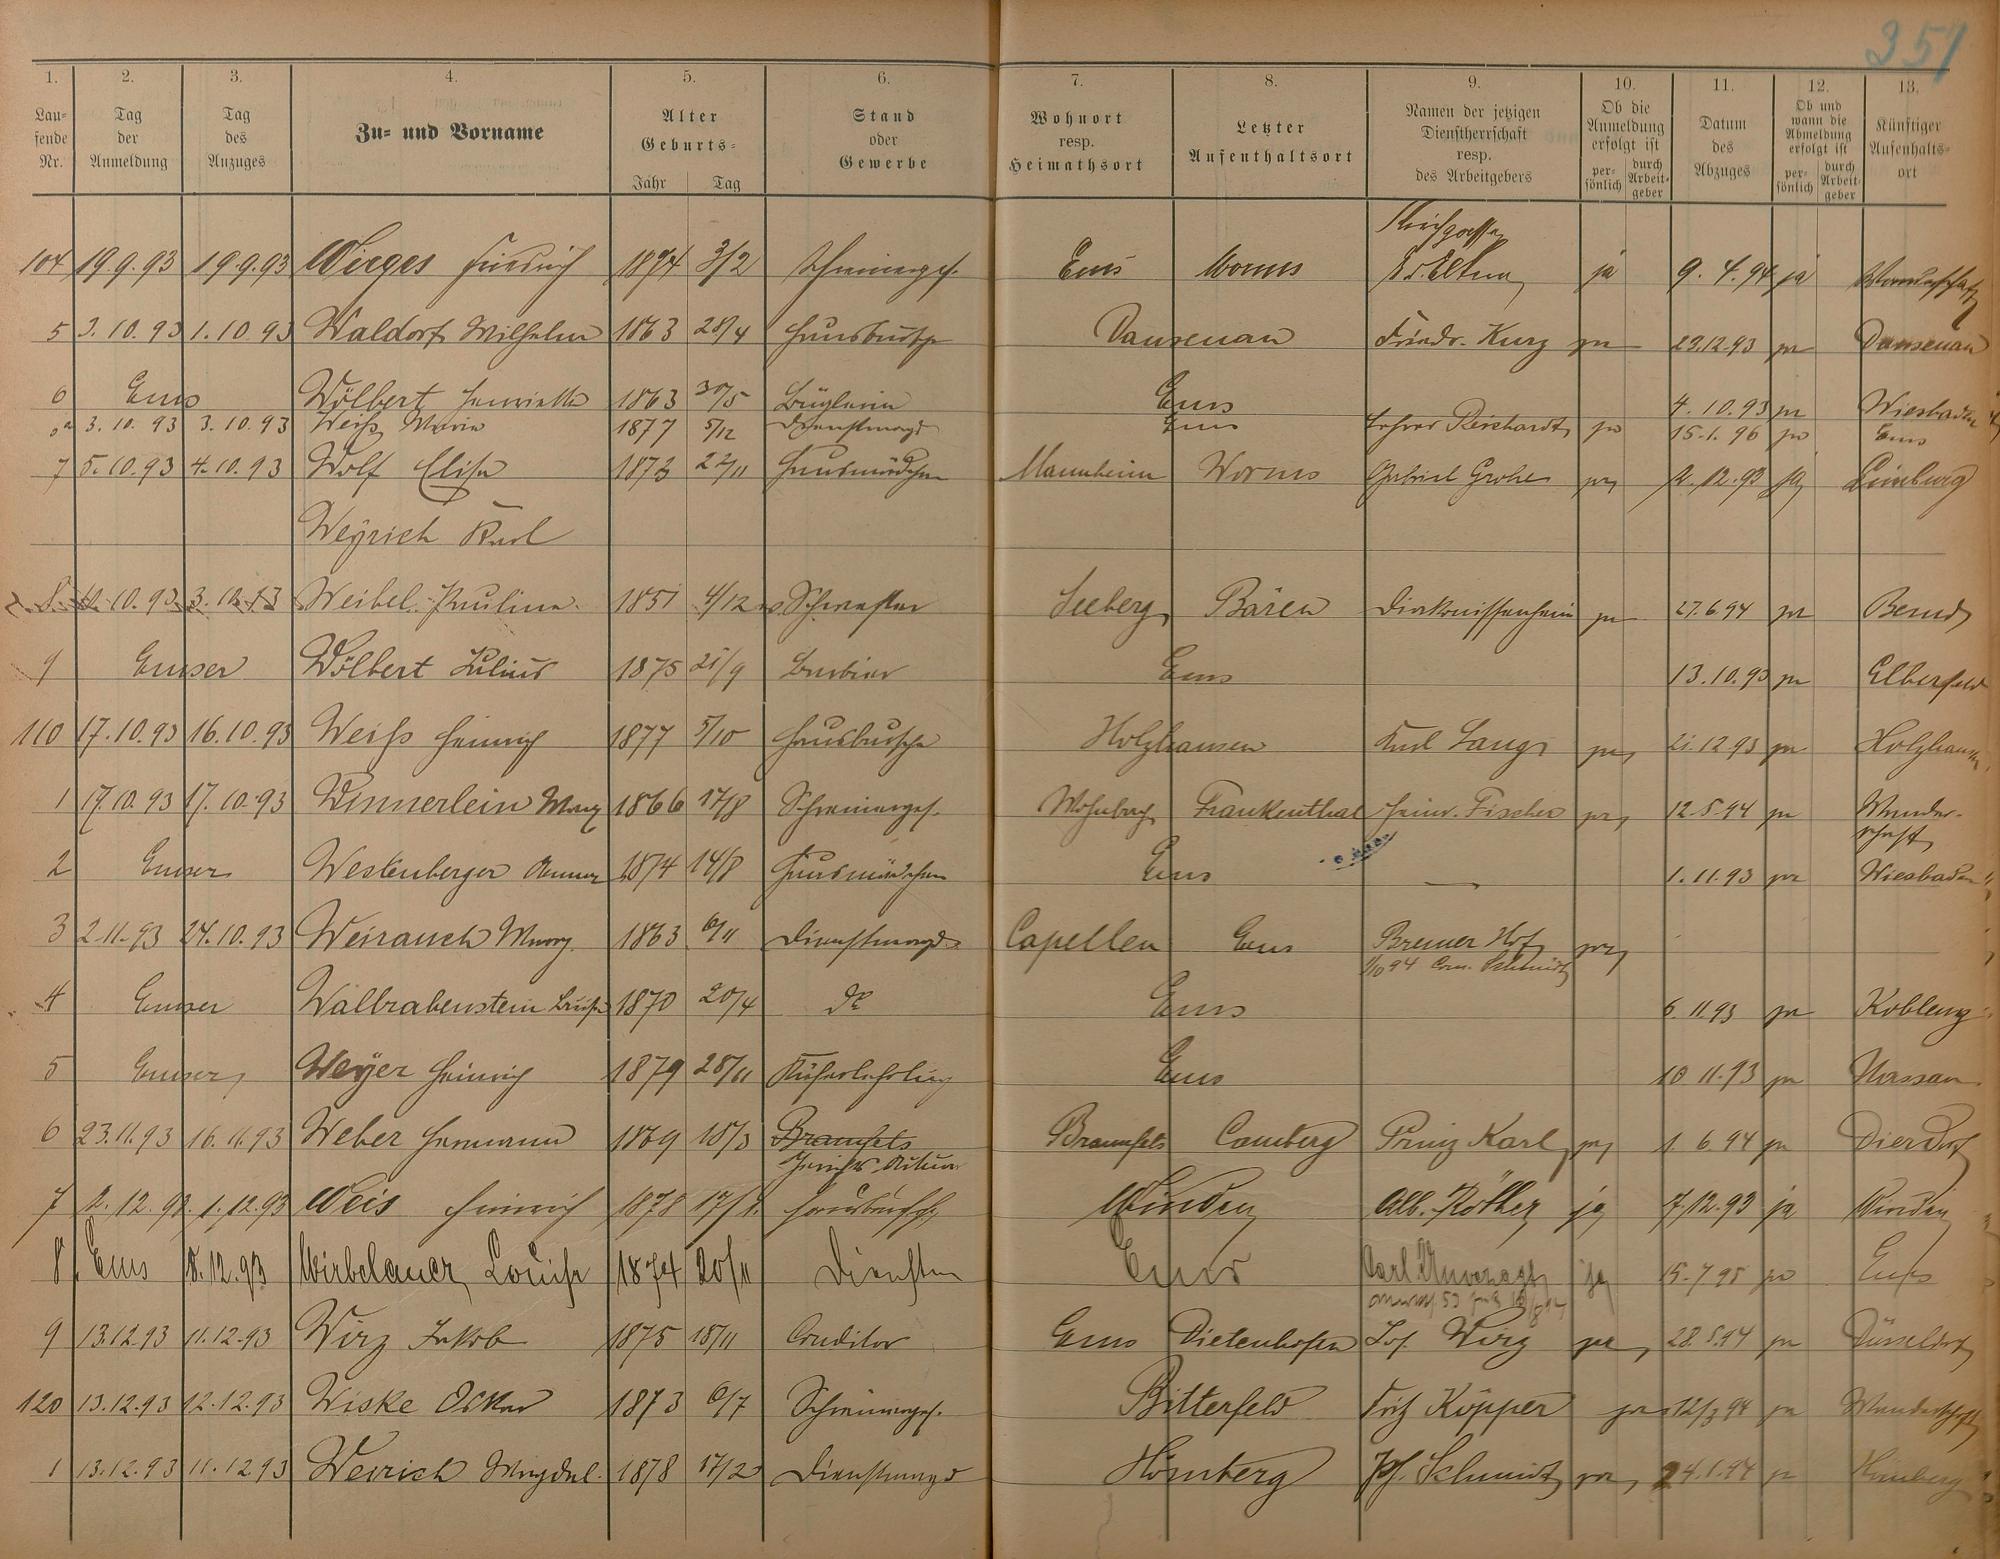 351
1. 2. 3. 4. 5. 6. 7. 8. 9. 10. 11. 12. 13.
Lau-
fende
Nr.
Tag
der
Anmeldung
Tag
des
Anzuges
Zu- und Vorname
Alter
Geburts-
Jahr Tag
Stand
oder
Gewerbe
Wohnort
resp.
Heimathsort
Letzter
Aufenthaltsort
Namen der jetzigen
Dienstherrschaft
resp.
des Arbeitgebers
Ob die
Anmeldung
erfolgt ist
per-
sönlich
durch
Arbeit-
geber
Datum
des
Abzuges
Ob und
wann die
Abmeldung
erfolgt ist
per-
sönlich
durch
Arbeit-
geber
Künftiger
Aufenthalts-
ort
104 19.9.93 19.9.93 Wirges Friedrich 1874 3/2 Schreinerges. Ems Worms ja 9.4.94 ja Wanderschaft
5 3.10.93 1.10.93 Waldorf Wilhelm 1863 28/4 Hausbursche Dausenau Friedr. Kurz ja 23.12.93 ja Dausenau
6 Ems Wölbert Henriette 1863 30/5 Büglerin Ems 4.10.93 ja Wiesbaden
6a 3.10.93 3.10.93 Weiß Maria 1877 5/12 Dienstmagd Ems Lehrer Reichardt ja 15.1.96 ja Ems
7 5.10.93 4.10.93 Wolf Elise 1873 22/11 Hausmädchen Mannheim Worms Gabriel Grohe ja 2.12.93 ja Limburg
Weyrich Karl
8 10.93 3.10.93 Weibel Pauline 1851 4/12 Schwester Seeberg Bären Diakonissenheim ja 27.6.94 ja
9 Emser Wölbert Julius 1875 21/9 Barbier Ems 13.10.93 ja Elberfeld
110 17.10.93 16.10.93 Weiß Heinrich 1877 5/10 Hausbursche Holzhausen Karl Lange ja 21.12.93 ja Holzhausen
1 17.10.93 17.10.93 Wimmerlein Marg 1866 17/8 Schreinerges. Frankenthal Heinr. Fischer ja 12.5.94 ja Wander-
schaft
2 Emser Westenberger Anna 1874 14/8 Hausmädchen Ems — 1.11.93 ja Wiesbaden
3 2.11.93 24.10.93 Weirauch Marg. 1863 6/11 Dienstmagd Capellen Ems Bremer Hof ja
1/10 94 Schmidt
4 Emser Walbrabenstein Luise 1870 20/4 do Ems 6.11.93 ja Koblenz
5 Emser Weyer Heinrich 1879 28/11 Küferlehrling Ems 10.11.93 ja Nassau
6 23.11.93 16.11.93 Weber Hermann 1869 18/3 Braunfels Braunfels Camberg Prinz Karl ja 1.6.94 ja Dierdorf
7 2.12.93 1.12.93 Weis Heinrich 1878 Hausbursche Winden Alb. Röther ja 7.12.93 ja Winden
8 Ems 8.12.93 Wirbelauer Louise 1874 20/11 Dienstm Ems Carl Unverzagt ja 15.7.95 ja Ems
9 13.12.93 11.12.93 Wirz Jakob 1875 18/11 Conditor Ems Dietenhofen Jos. Wirz ja 28.5.94 ja Düsseldorf
120 13.12.93 12.12.93 Wiske Oskar 1873 6/7 Schreinerges. Bitterfeld Fritz Köpper ja 12/3 94 ja Wanderschaft
1 13.12.93 11.12.93 Weirich Magdal. 1878 17/2 Dienstmagd Hömberg Jos. Schmidt ja 24.1.94 ja Hömberg